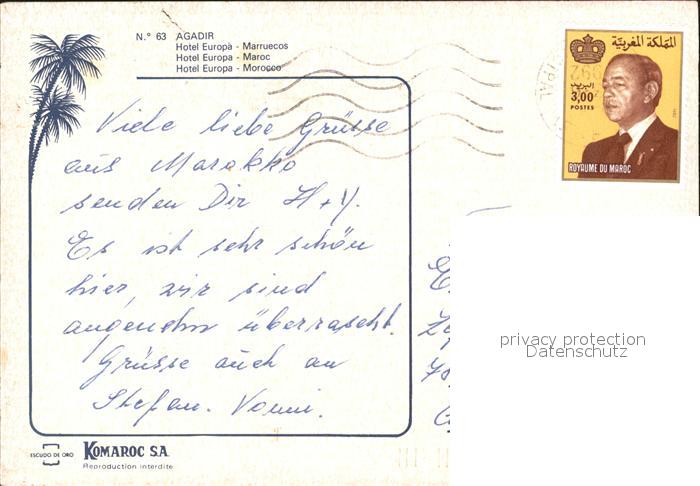 N.° 63 AGADIR
Hotel Europà - Marruecos
Hotel Europa - Maroc
Hotel Europa - Morocco
المملكة المغربية
البريد
3,00
POSTES
ROYAUME DU MAROC
Viele liebe Grüsse
aus Marokko
senden Dir H+Y.
Es ist sehr schön
hier, wir sind
angenehm überrascht.
Grüsse auch an
Stefan.
privacy protection
Datenschutz
ESCUDO DE ORO
KOMAROC S.A.
Reproduction interdite